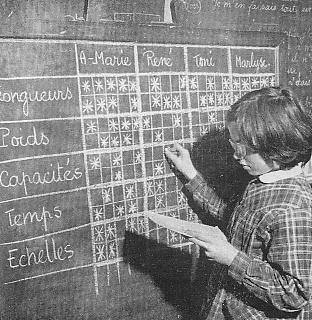 je m'en fais tout
A-Marie René Toni Marlyse
Longueurs
Poids
Capacités
Temps
Echelles